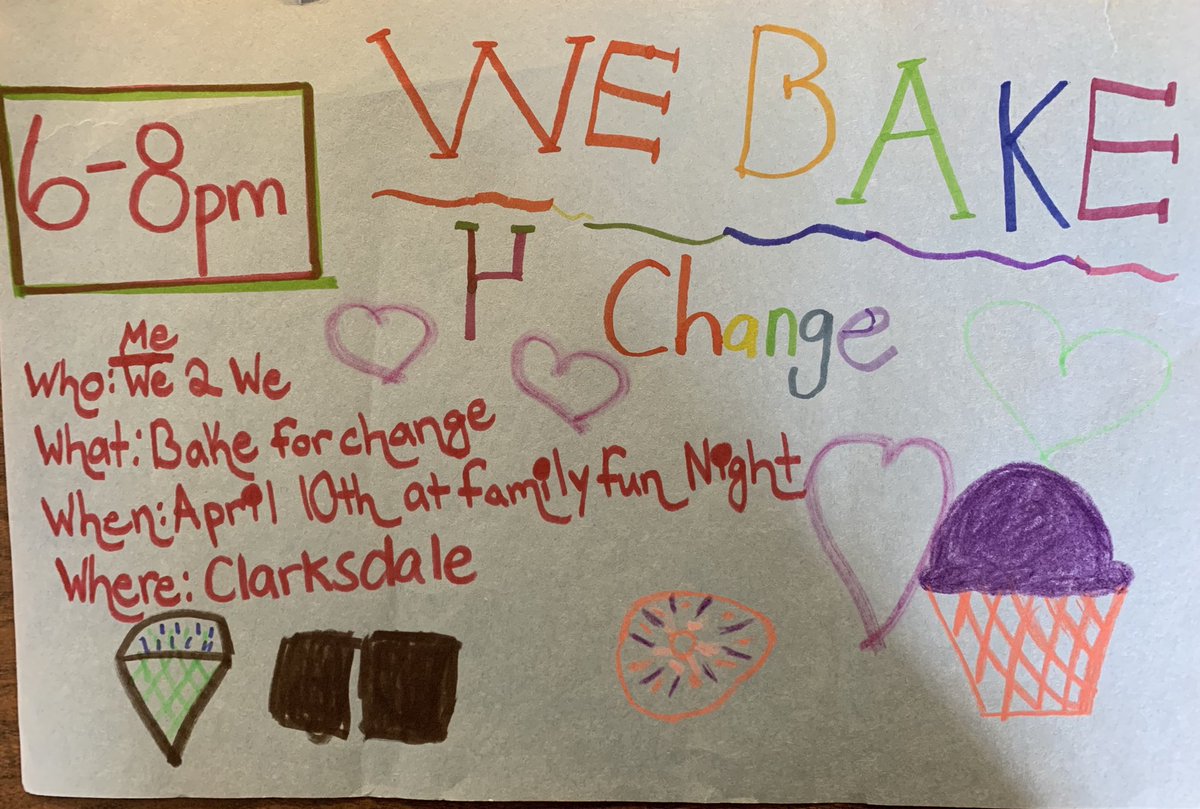 WE BAKE
6-8pm
4 Change
Me
Who: We 2 We
What: Bake for change
When: April 10th at family fun Night
Where: Clarksdale